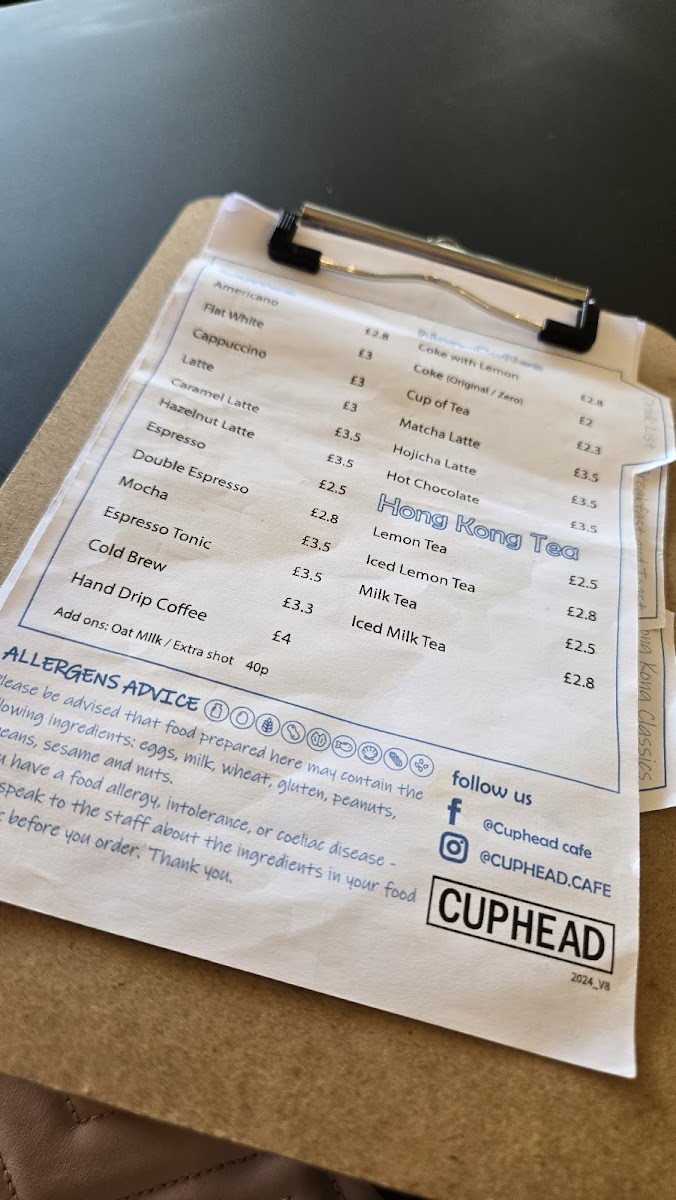 Americano £2.8
Flat White £3
Cappuccino £3
Latte £3
Caramel Latte £3.5
Hazelnut Latte £3.5
Espresso £2.5
Double Espresso £2.8
Mocha £3.5
Espresso Tonic £3.5
Cold Brew £3.3
Hand Drip Coffee £4
Add ons: Oat Milk / Extra shot 40p
Coke with Lemon £2.8
Coke (Original / Zero) £2
Cup of Tea £2.3
Matcha Latte £3.5
Hojicha Latte £3.5
Hot Chocolate £3.5
Hong Kong Tea
Lemon Tea £2.5
Iced Lemon Tea £2.8
Milk Tea £2.5
Iced Milk Tea £2.8
ALLERGENS ADVICE
lease be advised that food prepared here may contain the
lowing ingredients: eggs, milk, wheat, gluten, peanuts,
eans, sesame and nuts.
u have a food allergy, intolerance, or coeliac disease -
speak to the staff about the ingredients in your food
before you order. Thank you.
follow us
@Cuphead cafe
@CUPHEAD.CAFE
CUPHEAD
2024_V8
Kong Classics